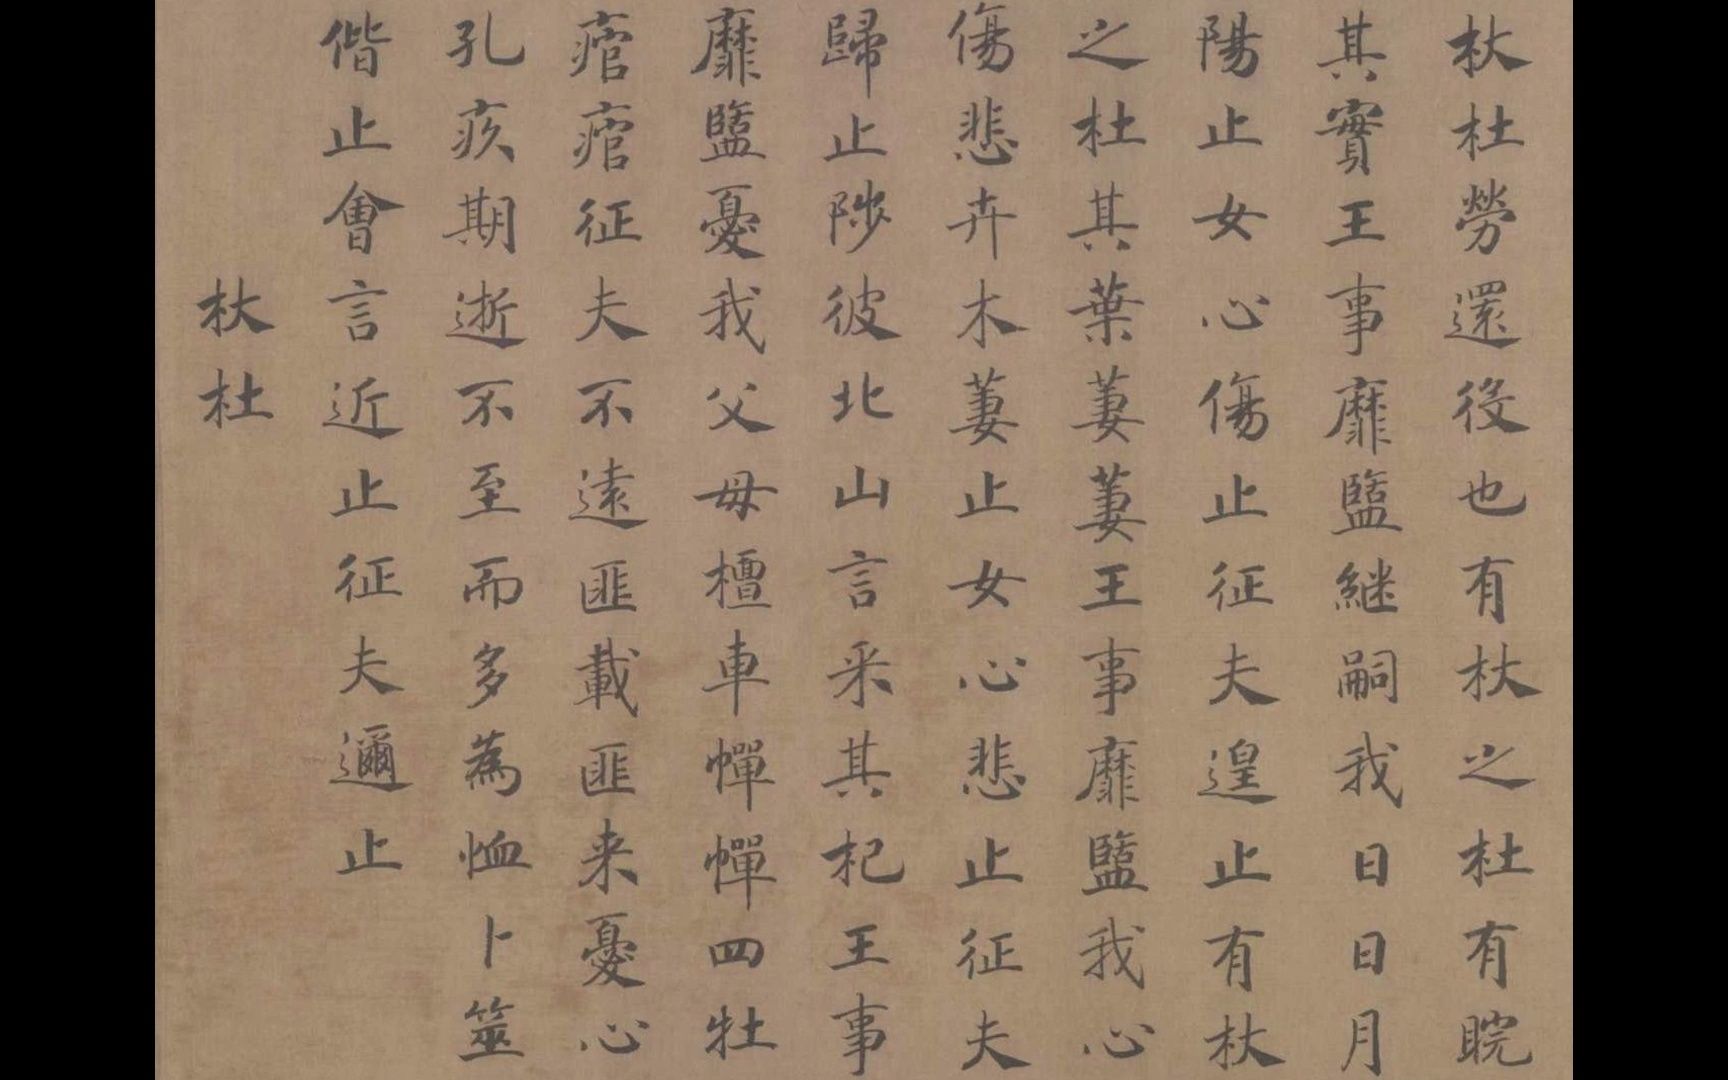 杕杜勞還役也有杕之杜有睆
其實王事靡盬継嗣我日日月
陽止女心傷止征夫遑止有杕
之杜其葉萋萋王事靡盬我心
傷悲卉木萋止女心悲止征夫
歸止陟彼北山言采其杞王事
靡盬憂我父母檀車幝幝四牡
痯痯征夫不遠匪載匪来憂心
孔疚期逝不至而多為恤卜筮
偕止會言近止征夫邇止
杕杜